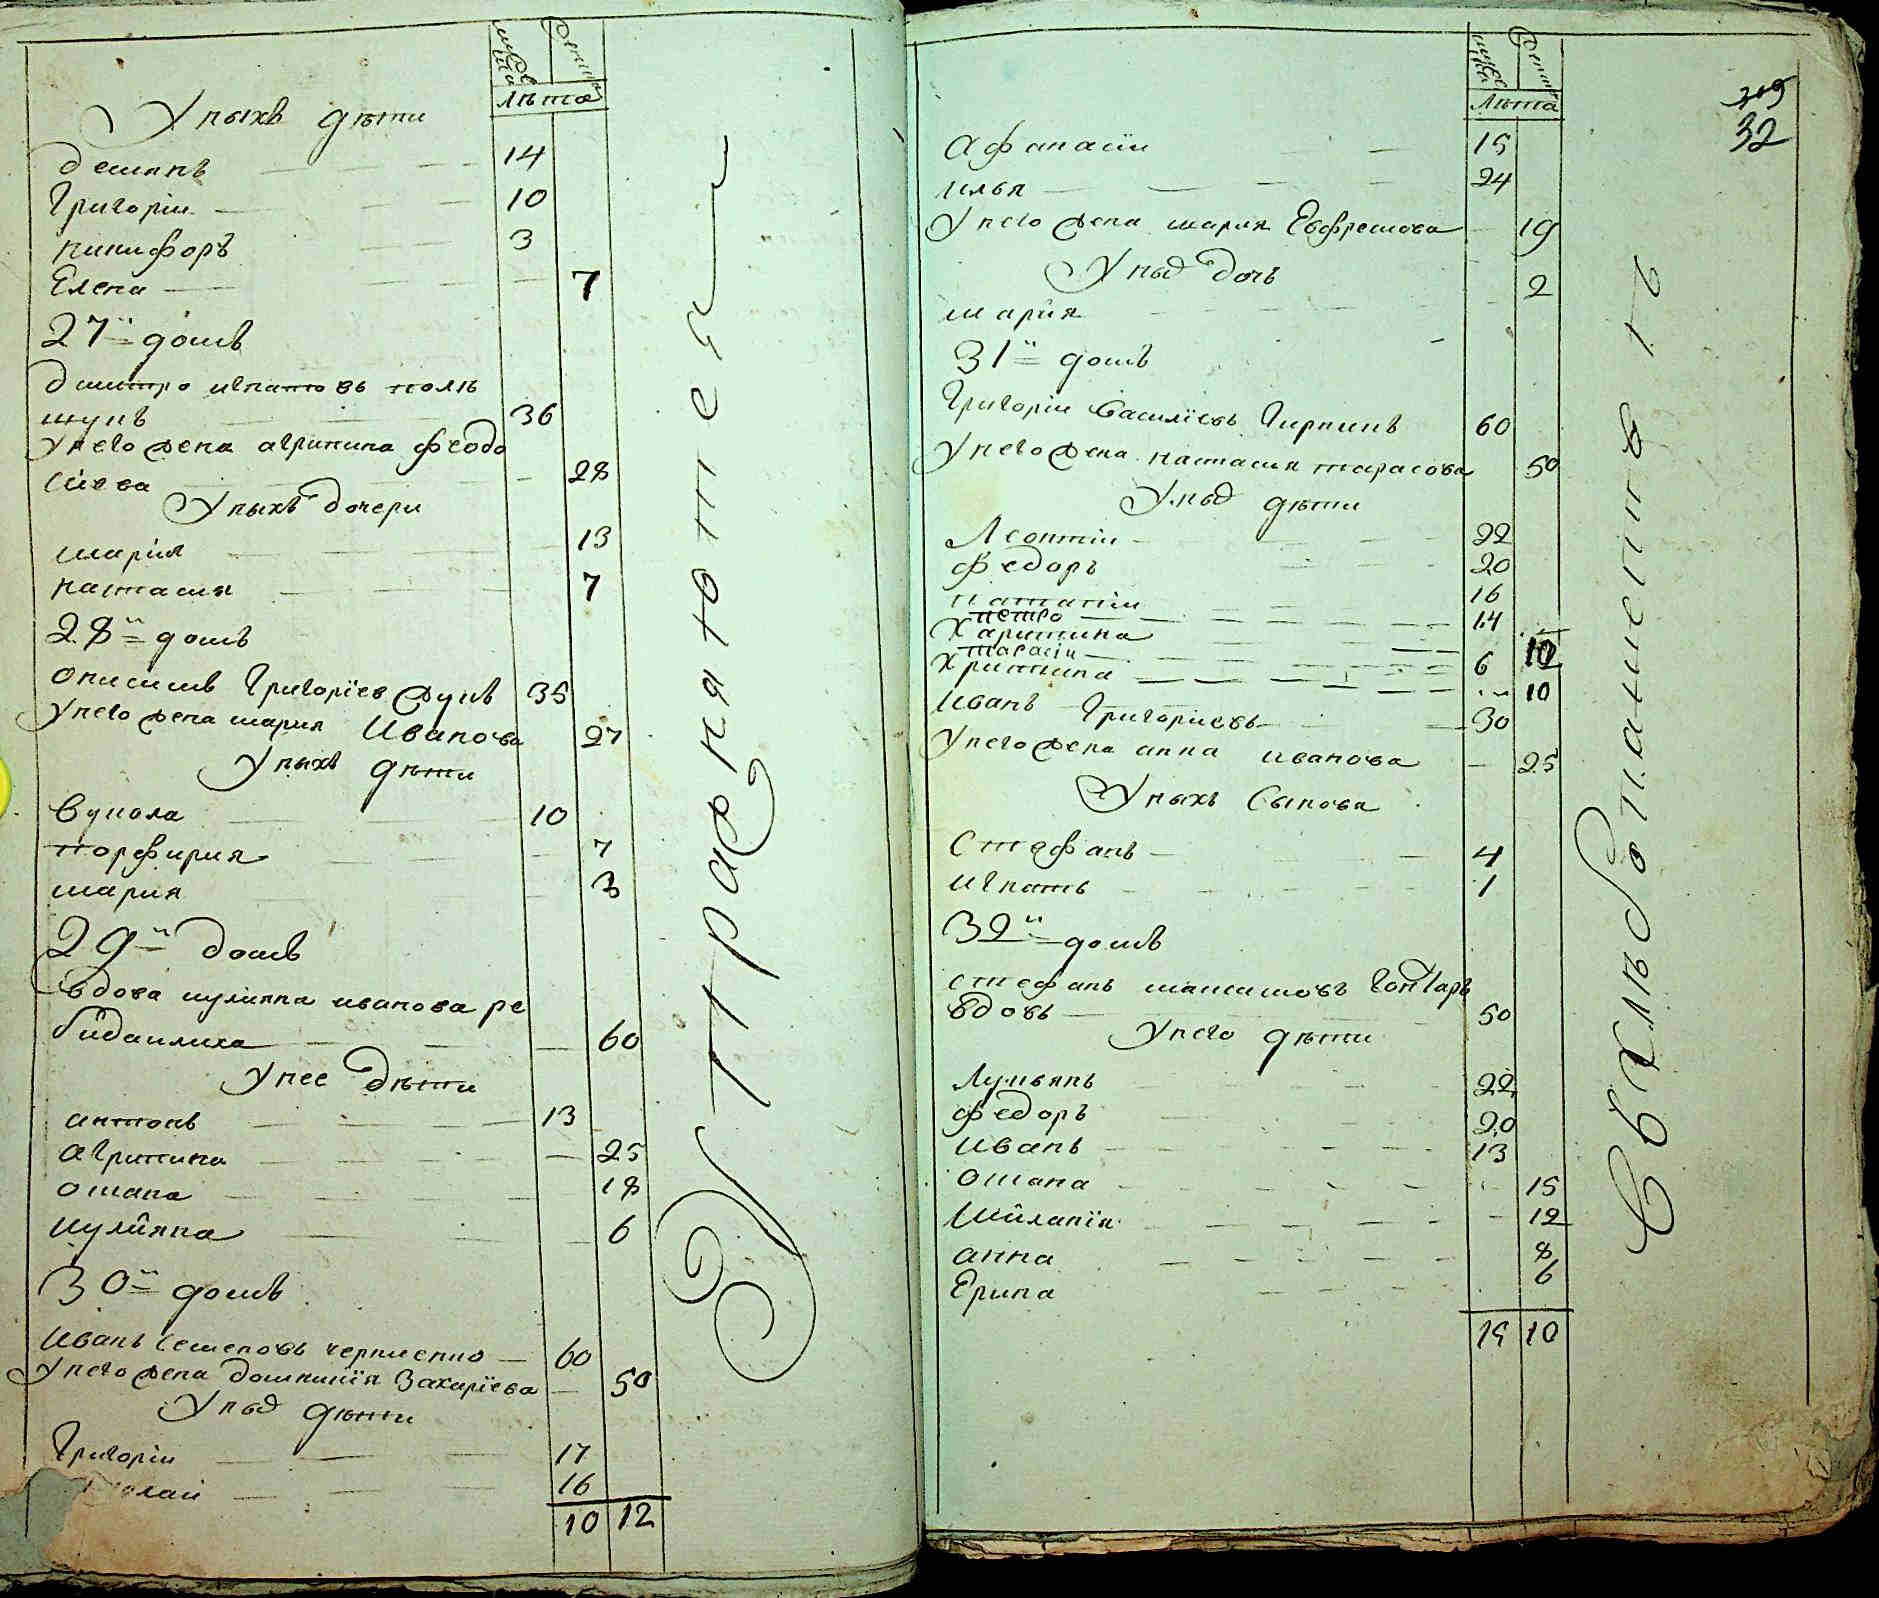 лѣта
У ныхъ дѣти
Демянъ 14
Григоріи 10
Никифоръ 3
Елена 7
27й домъ
Дмитро Игнатовъ
36
У него жена Агрипина Феодо
сіева 28
У ныхъ дочери
Марія 13
Настасия 7
28й домъ
Онисимъ Григоріев 35
У него жена Мария Иванова 27
У ныхъ дѣти
Вукола 10
Порфирия 7
Мария 3
29й домъ
Вдова Иулияна Иванова ре
60
У нее дѣти
Антонъ 13
Агрипина 25
Омана 18
Иулияна 6
30й домъ
Иванъ Семеновъ Черниенко 60
У него жена Домникия Захаріева 50
У ныхъ дѣти
Григоріи 17
16
10 12
305
32
лѣта
Афанасіи 15
Илья 24
У него жена Мария Евфремова 19
У ныхъ дочь
Марія 2
31й домъ
Григоріи Василіевъ 60
У него жена Настасия Тарасова 50
У ныхъ дѣти
Леонтіи 22
Федоръ 20
16
Петро 14
Харитина 12
Тарасіи 6
Христина 10
Иванъ Григориевъ 30
У него жена Анна Иванова 25
У ныхъ Сынова
Стефанъ 4
Игнатъ 1
32й домъ
Стефанъ Гонтаръ
вдовъ 50
У него дѣти
Лукьянъ 22
Федоръ 20
Иванъ 13
Омана 15
Миланія 12
Анна 8
Ерина 6
15 10